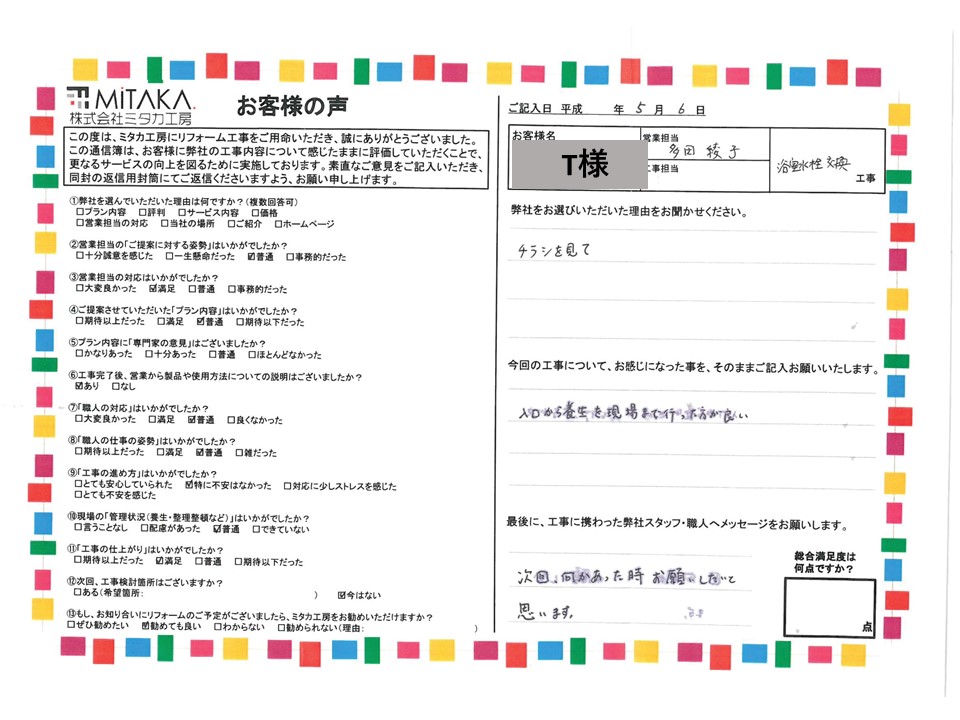 MiTAKA.
株式会社ミタカ工房
お客様の声
この度は、ミタカ工房にリフォーム工事をご用命いただき、誠にありがとうございました。
この通信簿は、お客様に弊社の工事内容について感じたままに評価していただくことで、
更なるサービスの向上を図るために実施しております。素直なご意見をご記入いただき、
同封の返信用封筒にてご返信くださいますよう、お願い申し上げます。
①弊社を選んでいただいた理由は何ですか?(複数回答可)
□プラン内容 □評判 □サービス内容 □価格
□営業担当の対応 □当社の場所 □ご紹介 □ホームページ
②営業担当の「ご提案に対する姿勢」はいかがでしたか?
□十分誠意を感じた □一生懸命だった ☑普通 □事務的だった
③営業担当の対応はいかがでしたか?
□大変良かった ☑満足 □普通 □事務的だった
④ご提案させていただいた「プラン内容」はいかがでしたか?
□期待以上だった □満足 ☑普通 □期待以下だった
⑤プラン内容に「専門家の意見」はございましたか?
□かなりあった □十分あった □普通 □ほとんどなかった
⑥工事完了後、営業から製品や使用方法についての説明はございましたか?
☑あり □なし
⑦「職人の対応」はいかがでしたか?
□大変良かった □満足 ☑普通 □良くなかった
⑧「職人の仕事の姿勢」はいかがでしたか?
□期待以上だった □満足 ☑普通 □雑だった
⑨「工事の進め方」はいかがでしたか?
□とても安心していられた ☑特に不安はなかった □対応に少しストレスを感じた
□とても不安を感じた
⑩現場の「管理状況(養生・整理整頓など)」はいかがでしたか?
□言うことなし □配慮があった ☑普通 □できていない
⑪「工事の仕上がり」はいかがでしたか?
□期待以上だった ☑満足 □普通 □期待以下だった
⑫次回、工事検討箇所はございますか?
□ある(希望箇所: ) ☑今はない
⑬もし、お知り合いにリフォームのご予定がございましたら、ミタカ工房をお勧めいただけますか?
□ぜひ勧めたい ☑勧めても良い □わからない □勧められない(理由: )
ご記入日 平成 年 5 月 6 日
お客様名
T様
営業担当
多田 綾子
工事担当
浴室水栓交換
工事
弊社をお選びいただいた理由をお聞かせください。
チラシを見て
今回の工事について、お感じになった事を、そのままご記入お願いいたします。
入口から養生を現場まで行った方が良い
最後に、工事に携わった弊社スタッフ・職人へメッセージをお願いします。
次回、何かあった時お願いしたいと
思います。
総合満足度は
何点ですか?
点